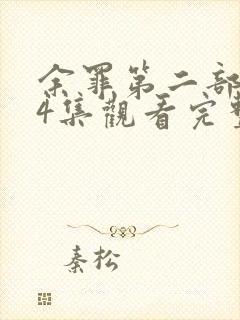 余罪第二部
4集觀看完整
秦松